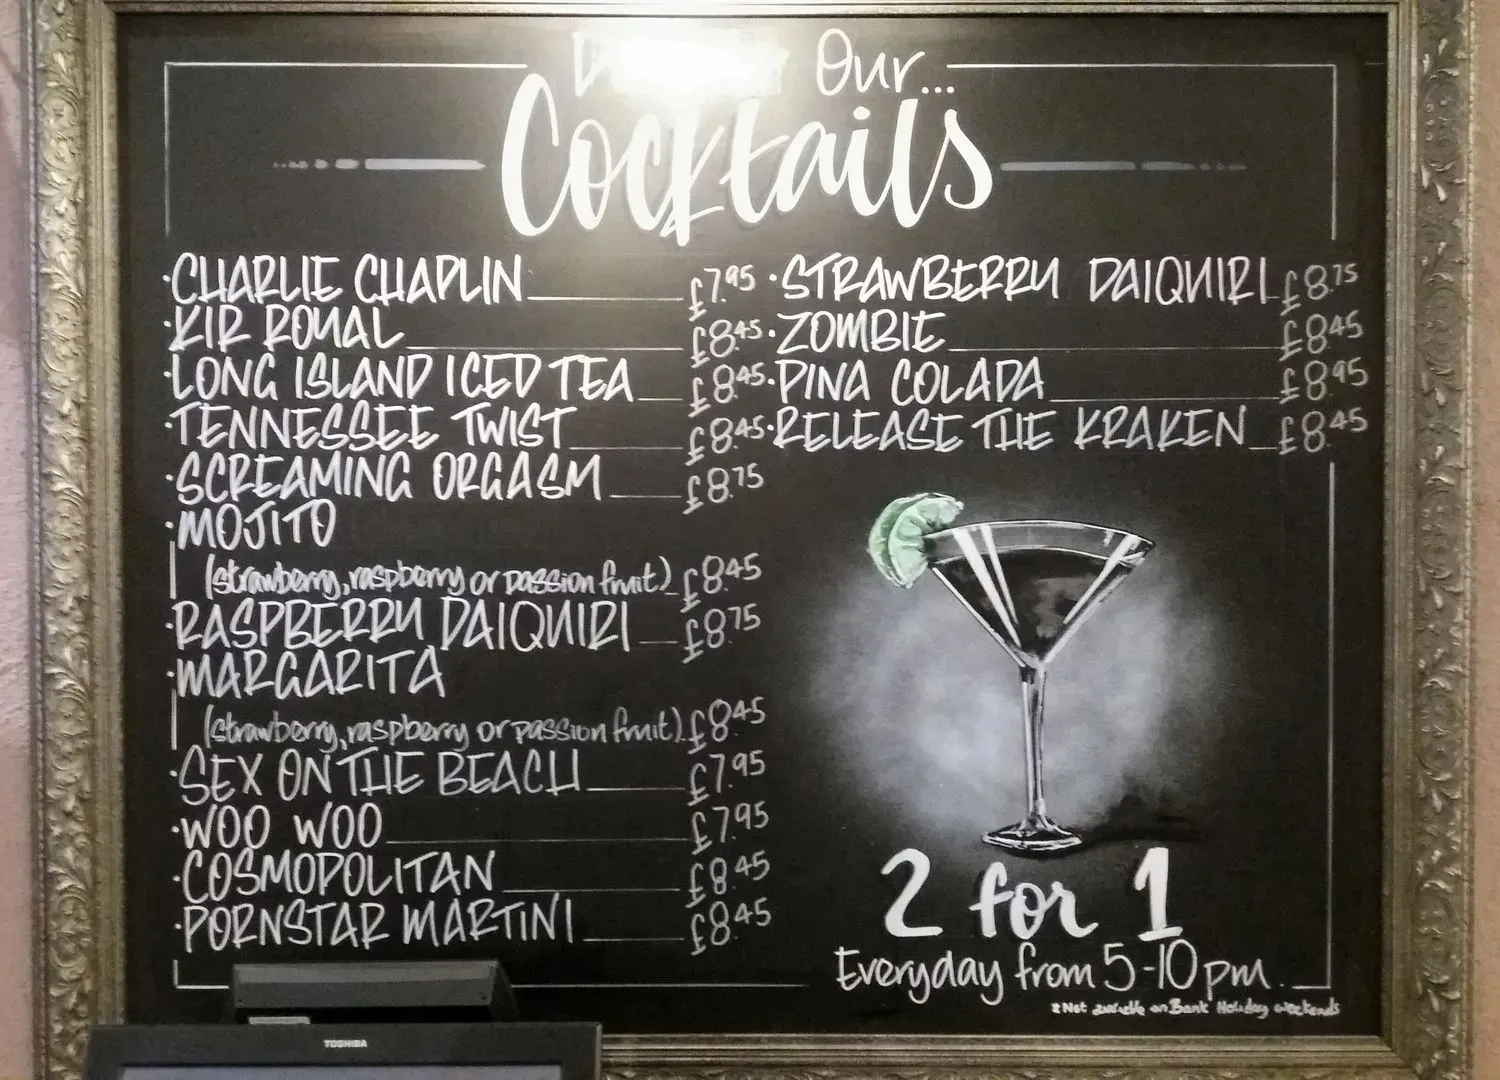 Our...
Cocktails
·CHARLIE CHAPLIN £7.95
·KIR ROYAL £8.45
·LONG ISLAND ICED TEA £8.45
·TENNESSEE TWIST £8.45
·SCREAMING ORGASM £8.75
·MOJITO
(strawberry, raspberry or passion fruit) £8.45
·RASPBERRY DAIQUIRI £8.75
·MARGARITA
(strawberry, raspberry or passion fruit) £8.45
·SEX ON THE BEACH £7.95
·WOO WOO £7.95
·COSMOPOLITAN £8.45
·PORNSTAR MARTINI £8.45
·STRAWBERRY DAIQUIRI £8.75
·ZOMBIE £8.45
·PINA COLADA £8.95
·RELEASE THE KRAKEN £8.45
2 for 1
Everyday from 5-10pm.
*Not available on Bank Holiday weekends
TOSHIBA